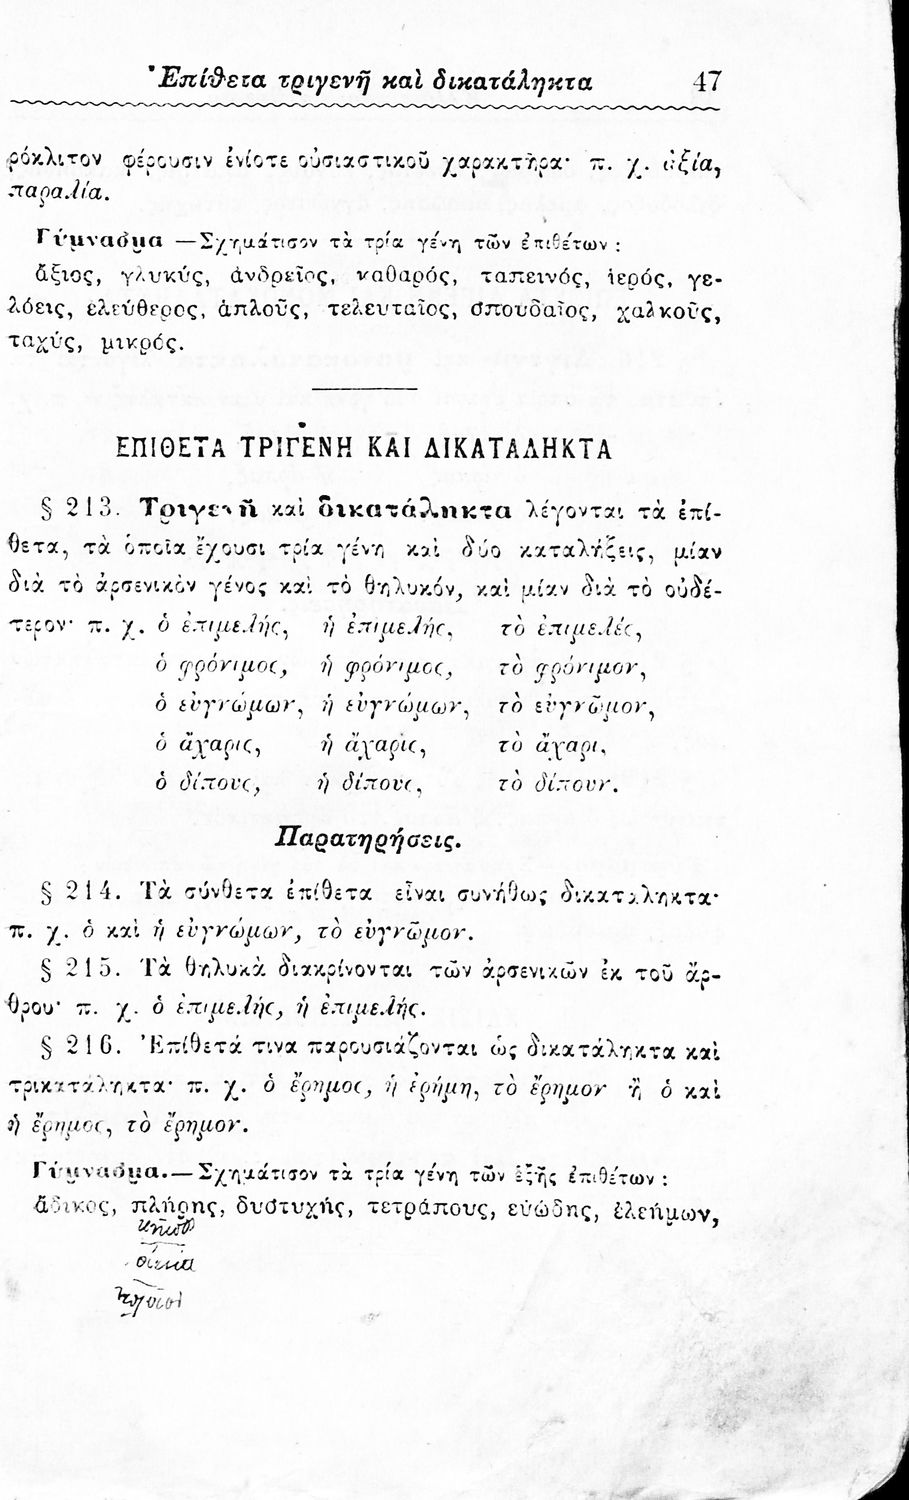 Ἐπίθετα τριγενῆ καὶ δικατάληκτα 47
ρόκλιτον φέρουσιν ἐνίοτε οὐσιαστικοῦ χαρακτῆρα· π. χ. ἀξία,
παραλία.
Γύμνασμα —Σχημάτισον τὰ τρία γένη τῶν ἐπιθέτων :
ἄξιος, γλυκύς, ἀνδρεῖος, καθαρός, ταπεινός, ἱερός, γε-
λόεις, ἐλεύθερος, ἁπλοῦς, τελευταῖος, σπουδαῖος, χαλκοῦς,
ταχύς, μικρός.
ΕΠΙΘΕΤΑ ΤΡΙΓΕΝΗ ΚΑΙ ΔΙΚΑΤΑΛΗΚΤΑ
§ 213. Τριγενῆ καὶ δικατάληκτα λέγονται τὰ ἐπί-
θετα, τὰ ὁποῖα ἔχουσι τρία γένη καὶ δύο καταλήξεις, μίαν
διὰ τὸ ἀρσενικὸν γένος καὶ τὸ θηλυκόν, καὶ μίαν διὰ τὸ οὐδέ-
τερον· π. χ. ὁ ἐπιμελής, ἡ ἐπιμελής, τὸ ἐπιμελές,
ὁ φρόνιμος, ἡ φρόνιμος, τὸ φρόνιμον,
ὁ εὐγνώμων, ἡ εὐγνώμων, τὸ εὐγνῶμον,
ὁ ἄχαρις, ἡ ἄχαρις, τὸ ἄχαρι,
ὁ δίπους, ἡ δίπους, τὸ δίπουν.
Παρατηρήσεις.
§ 214. Τὰ σύνθετα ἐπίθετα εἶναι συνήθως δικατάληκτα·
π. χ. ὁ καὶ ἡ εὐγνώμων, τὸ εὐγνῶμον.
§ 215. Τὰ θηλυκὰ διακρίνονται τῶν ἀρσενικῶν ἐκ τοῦ ἄρ-
θρου· π. χ. ὁ ἐπιμελής, ἡ ἐπιμελής.
§ 216. Ἐπίθετά τινα παρουσιάζονται ὡς δικατάληκτα καὶ
τρικατάληκτα· π. χ. ὁ ἔρημος, ἡ ἐρήμη, τὸ ἔρημον ἢ ὁ καὶ
ἡ ἔρημος, τὸ ἔρημον.
Γύμνασμα.—Σχημάτισον τὰ τρία γένη τῶν ἑξῆς ἐπιθέτων :
ἄδικος, πλήρης, δυστυχής, τετράπους, εὐώδης, ἐλεήμων,